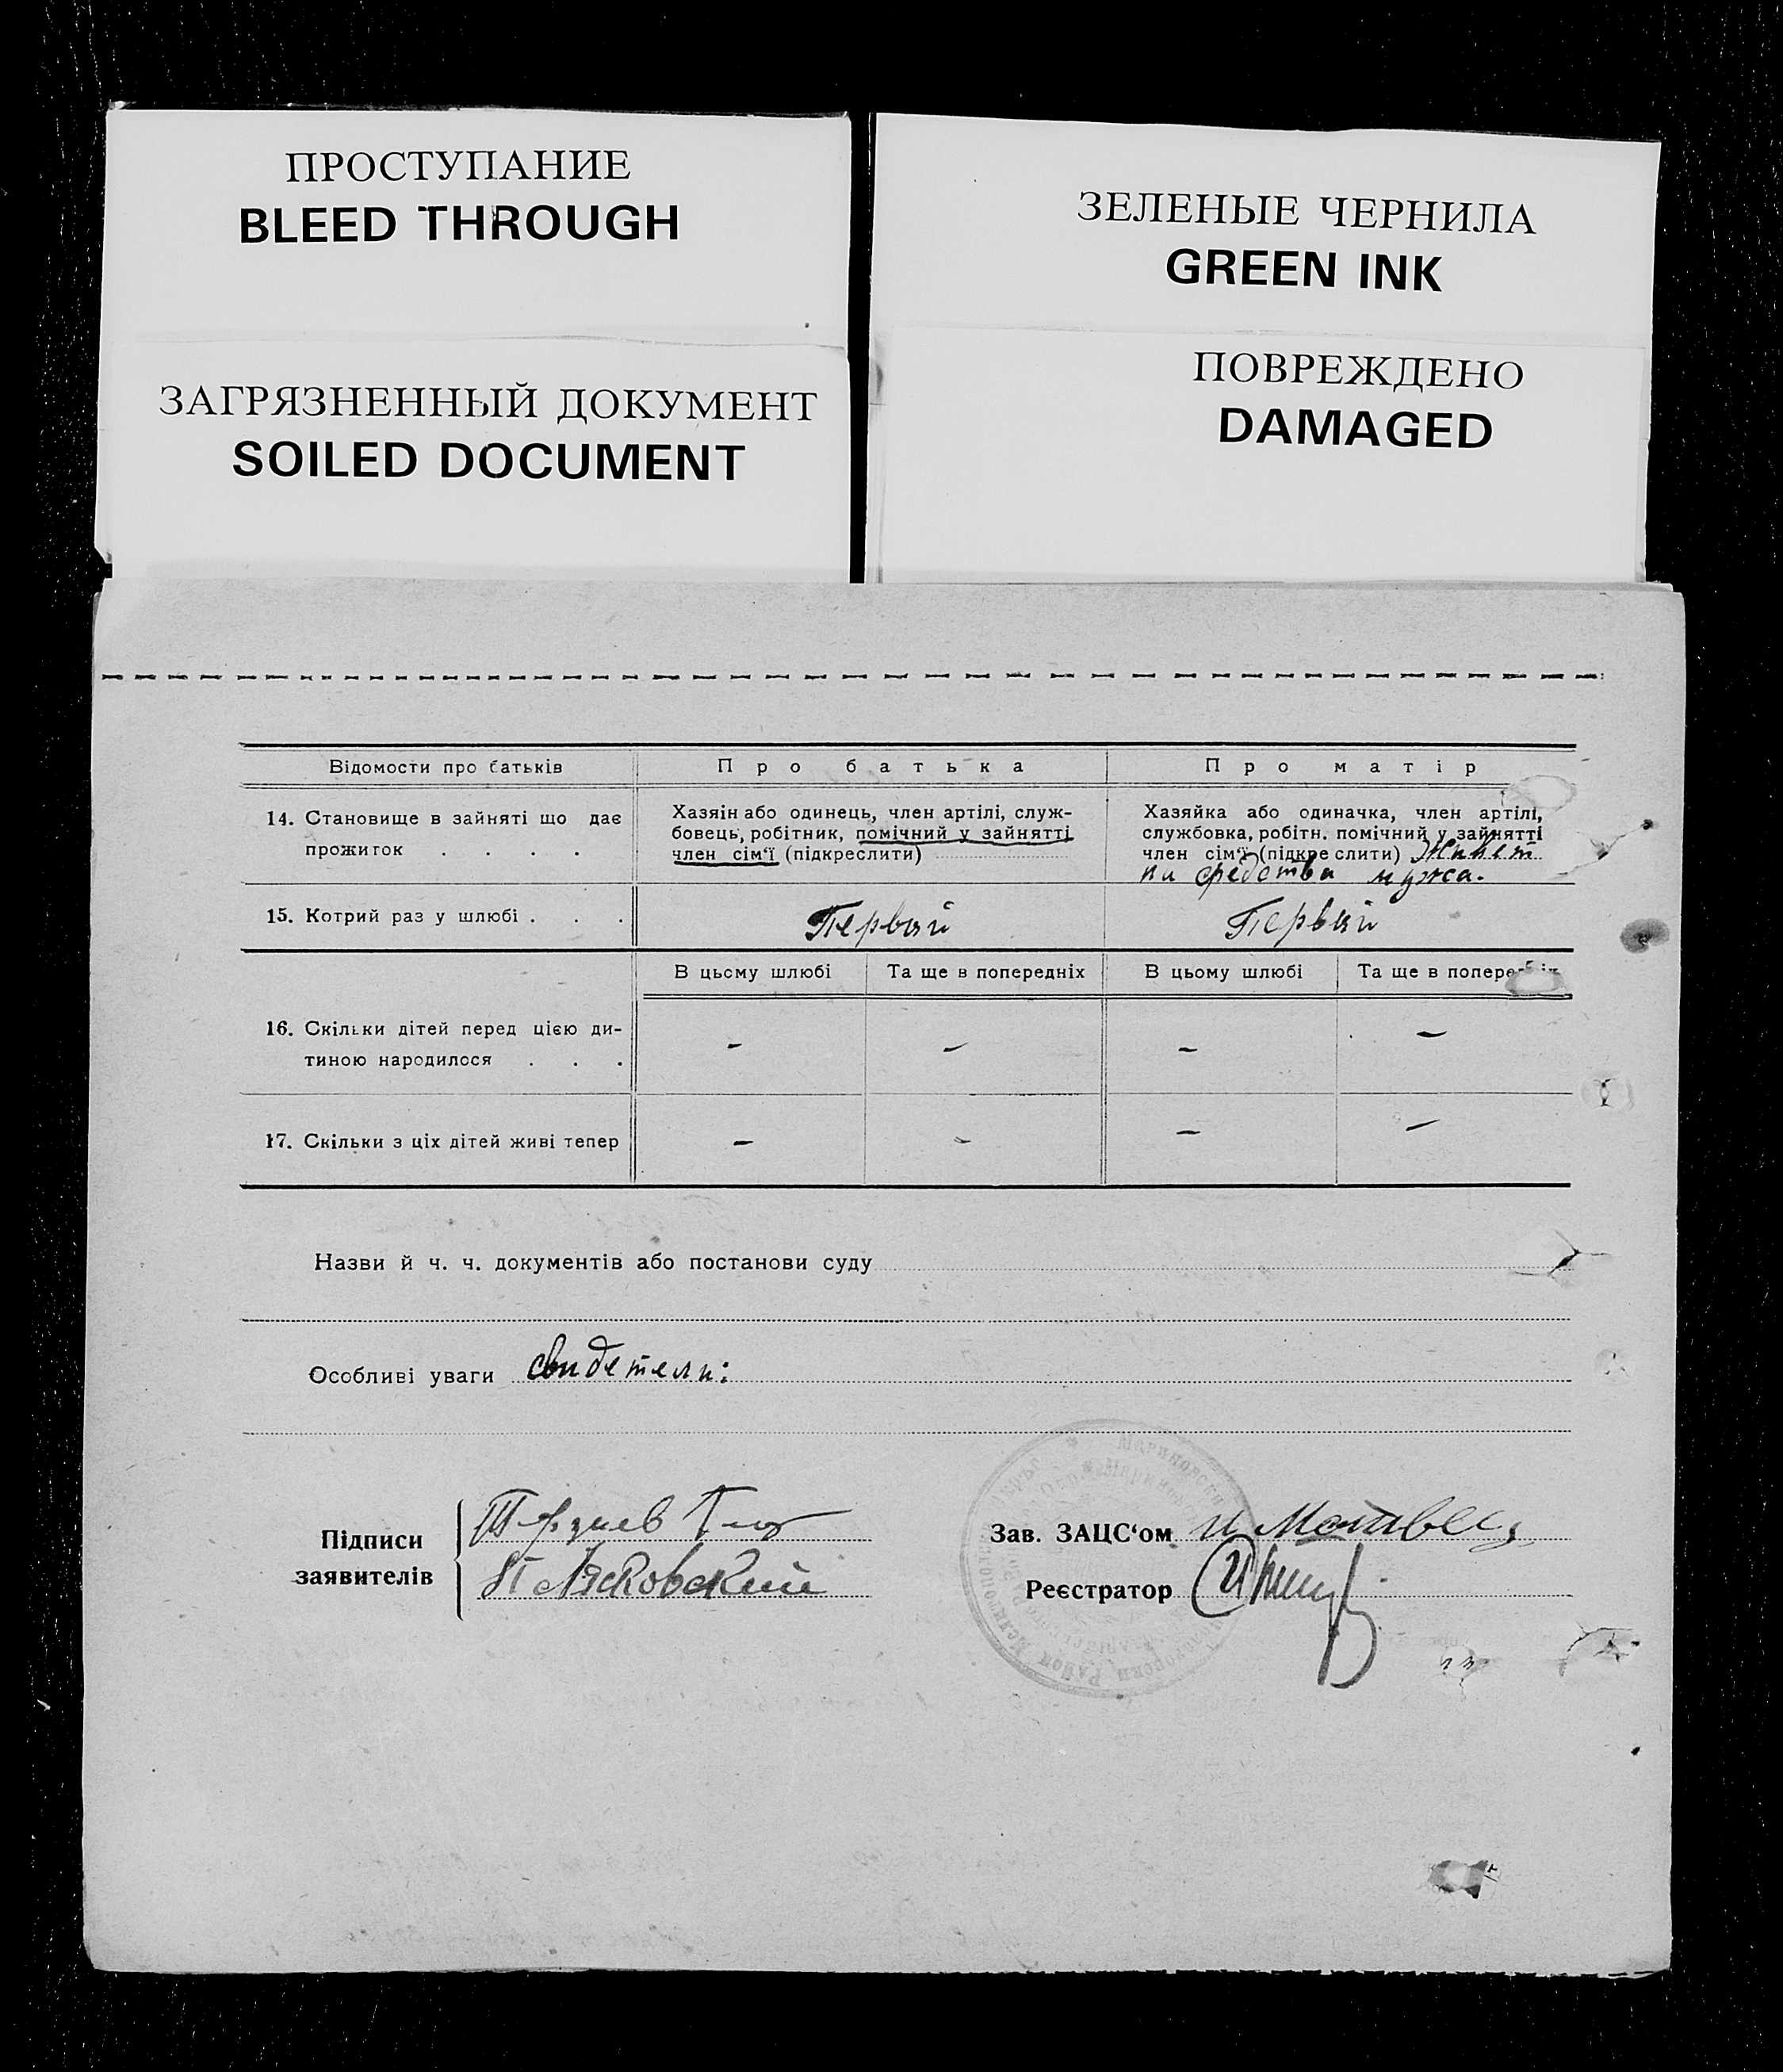 ПРОСТУПАНИЕ
BLEED THROUGH
ЗЕЛЕНЫЕ ЧЕРНИЛА
GREEN INK
ЗАГРЯЗНЕННЫЙ ДОКУМЕНТ
SOILED DOCUMENT
ПОВРЕЖДЕНО
DAMAGED
Відомости про батьків
Про батька
Про матір
14. Становище в зайняті що дає
прожиток . . . .
Хазяін або одинець, член артілі, служ-
бовець, робітник, помічний у зайнятті
член сім‘ї (підкреслити)
Хазяйка або одиначка, член артілі,
службовка, робітн. помічний у зайнятті
член сім‘ї (підкреслити) Живет
на средства мужа.
15. Котрий раз у шлюбі . . .
Первый
Первый
В цьому шлюбі
Та ще в попередніх
В цьому шлюбі
Та ще в попередніх
16. Скільки дітей перед цією ди-
тиною народилося . . .
-
-
-
-
17. Скільки з ціх дітей живі тепер
-
-
-
-
Назви й ч. ч. документів або постанови суду
Особливі уваги свидетели:
Підписи
заявителів
Лясковский
Зав. ЗАЦС‘ом
Реєстратор